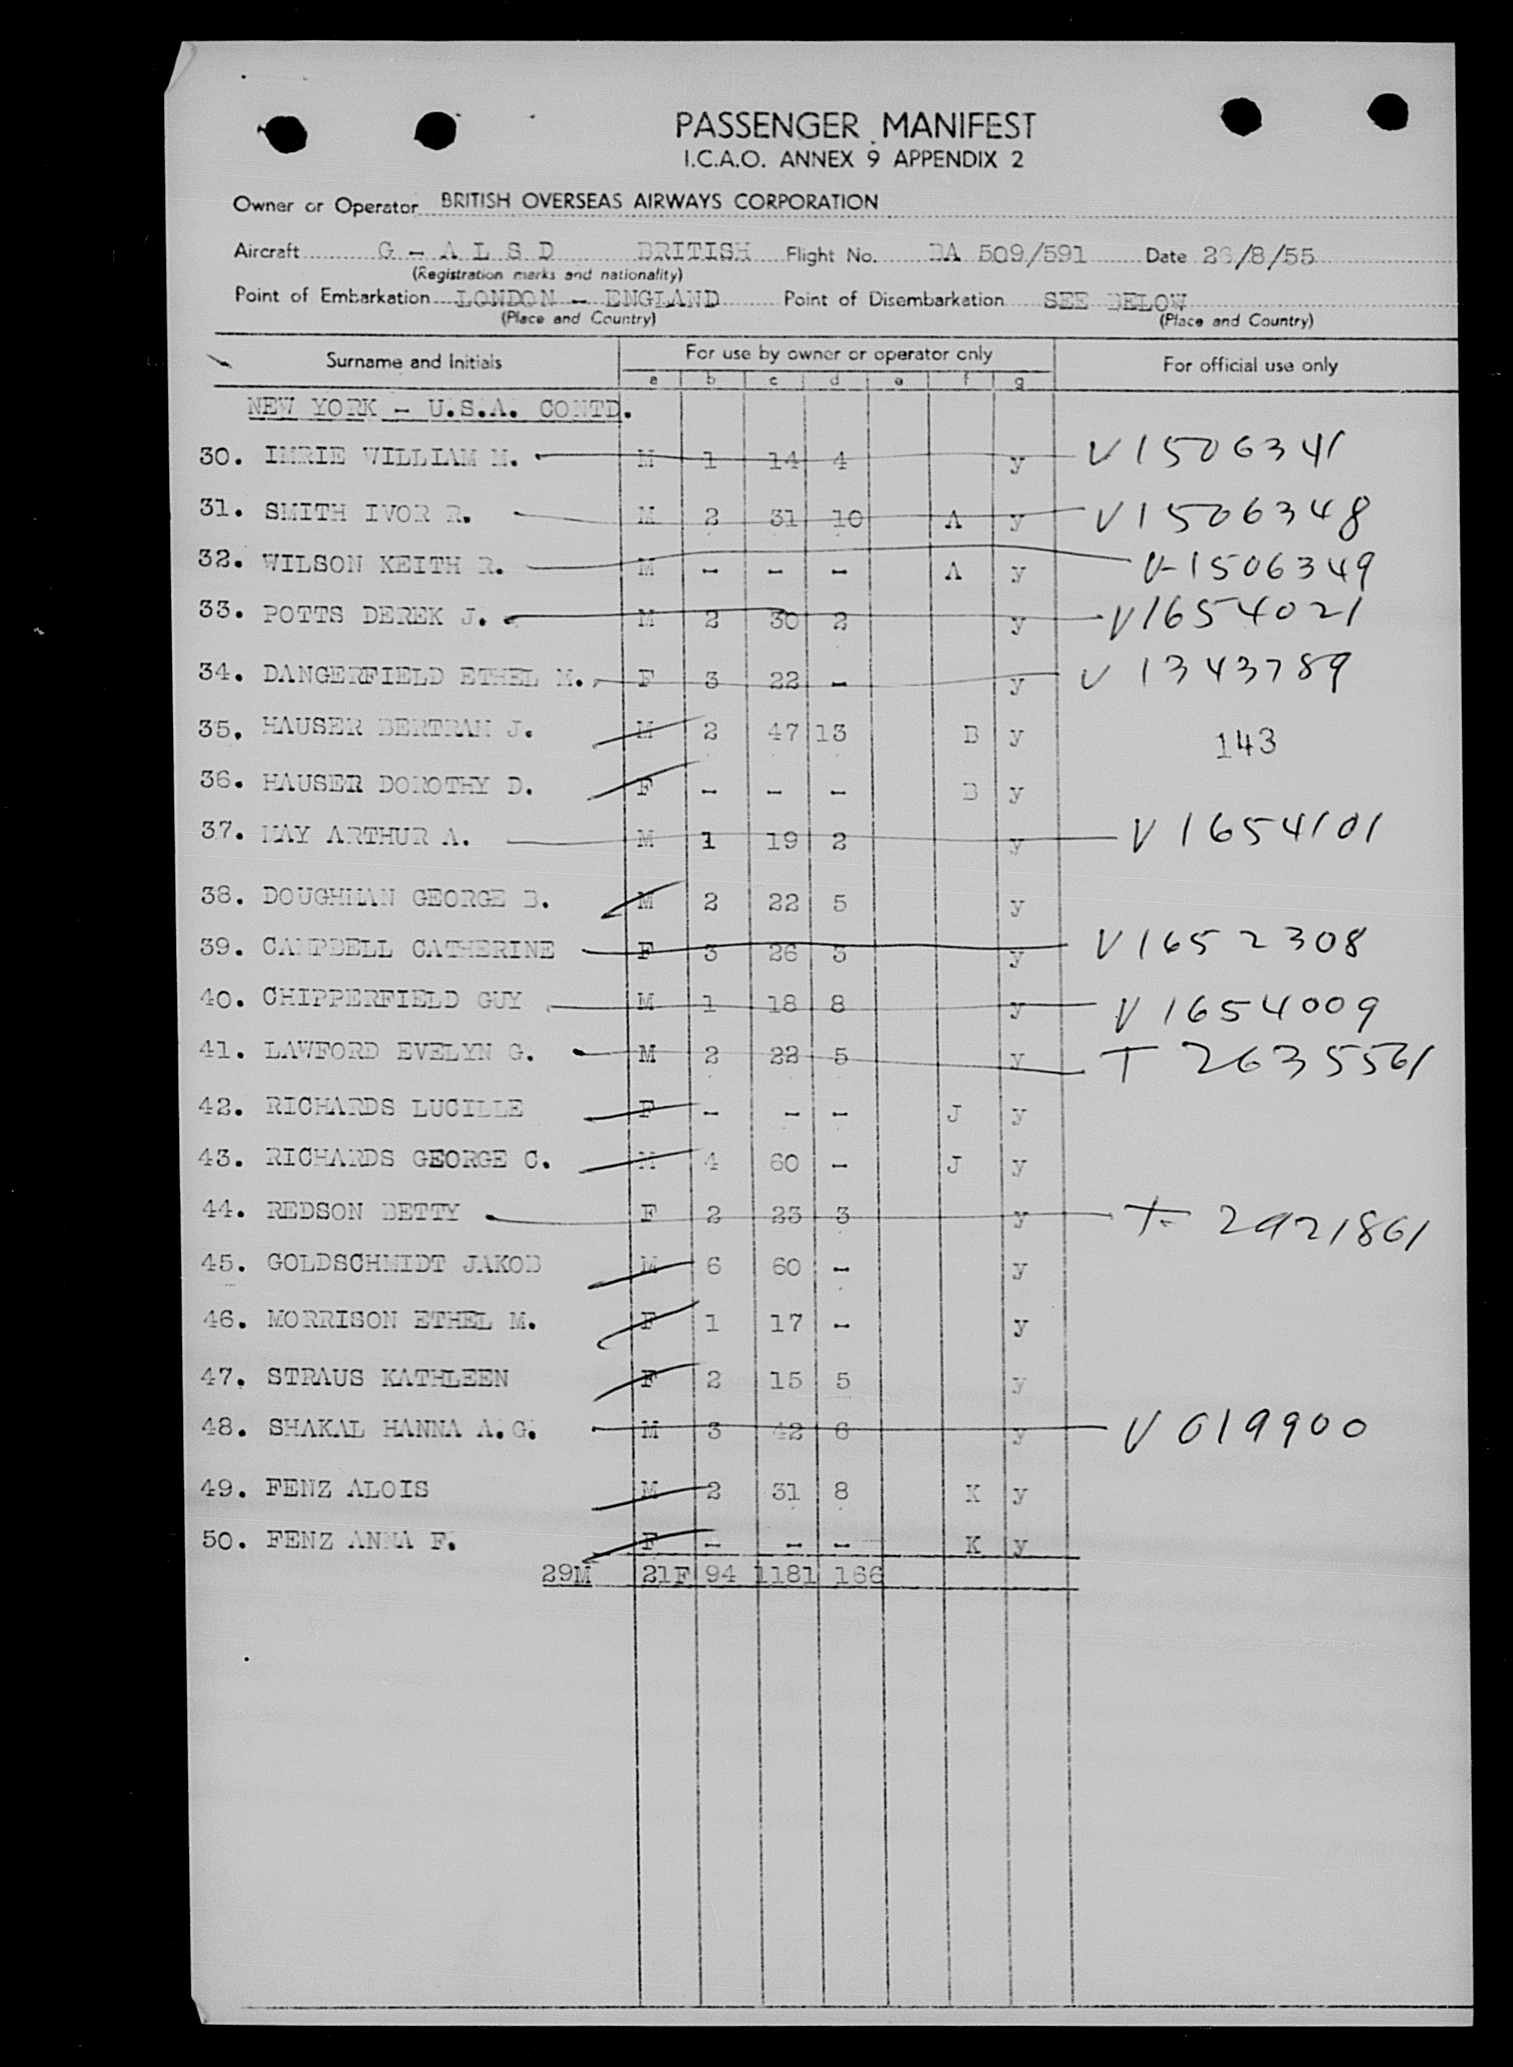 PASSENGER MANIFEST
I.C.A.O. ANNEX 9 APPENDIX 2
Owner or Operator BRITISH OVERSEAS AIRWAYS CORPORATION
Aircraft G - A L S D BRITISH Flight No. BA 509/591 Date 26/8/55
(Registration marks and nationality)
Point of Embarkation LONDON - ENGLAND Point of Disembarkation SEE BELOW
(Place and Country) (Place and Country)
Surname and Initials For use by owner or operator only For official use only
a b c d e f g
NEW YORK - U.S.A. CONTD.
30. IMRIE WILLIAM M. M 1 14 4 y V 1506341
31. SMITH IVOR R. M 2 31 10 A y V 1506348
32. WILSON KEITH R. M - - - A y V-1506349
33. POTTS DEREK J. M 2 30 2 y V1654021
34. DANGERFIELD ETHEL M. F 3 22 - y V 1343789
35. HAUSER BERTRAM J. M 2 47 13 B y 143
36. HAUSER DOROTHY D. F - - - B y
37. MAY ARTHUR A. M 1 19 2 y V 1654101
38. DOUGHMAN GEORGE B. M 2 22 5 y
39. CAMPBELL CATHERINE F 3 26 3 y V1652308
40. CHIPPERFIELD GUY M 1 18 8 y V 1654009
41. LAWFORD EVELYN G. M 2 22 5 y T 2635561
42. RICHARDS LUCILLE F - - - J y
43. RICHARDS GEORGE C. M 4 60 - J y
44. REDSON BETTY F 2 23 3 y T- 2921861
45. GOLDSCHMIDT JAKOB M 6 60 - y
46. MORRISON ETHEL M. F 1 17 - y
47. STRAUS KATHLEEN F 2 15 5 y
48. SHAKAL HANNA A.G. M 3 42 6 y V 019900
49. FENZ ALOIS M 2 31 8 K y
50. FENZ ANNA F. F - - - K y
29M 21F 94 1181 166